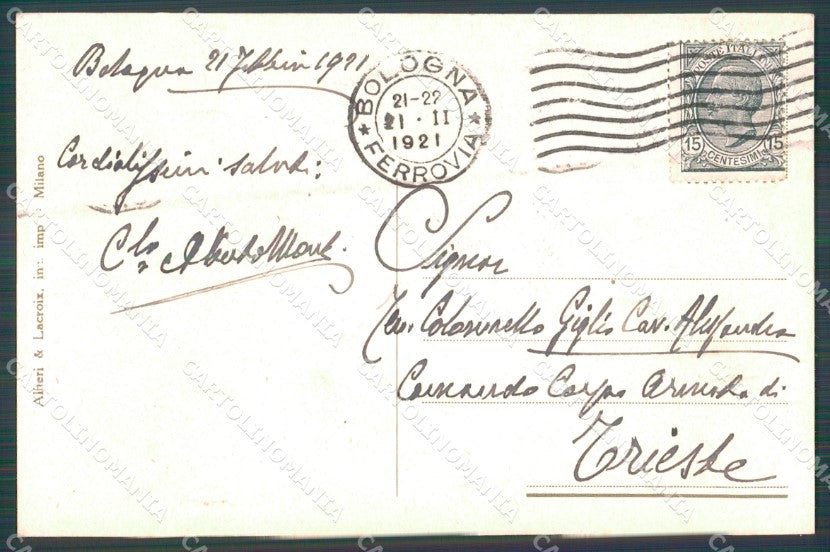 Bologna 21 Febbraio 1921
Cordialissimi saluti:
BOLOGNA
21-22
21 · II
1921
★ FERROVIA ★
POSTE ITALIANE
15 CENTESIMI 15
Signor
Ten. Colonnello Giglio Cav. Alessandro
Comando Corpo Armata di
Trieste
Alfieri & Lacroix, imp Milano
CARTOLINOMANIA